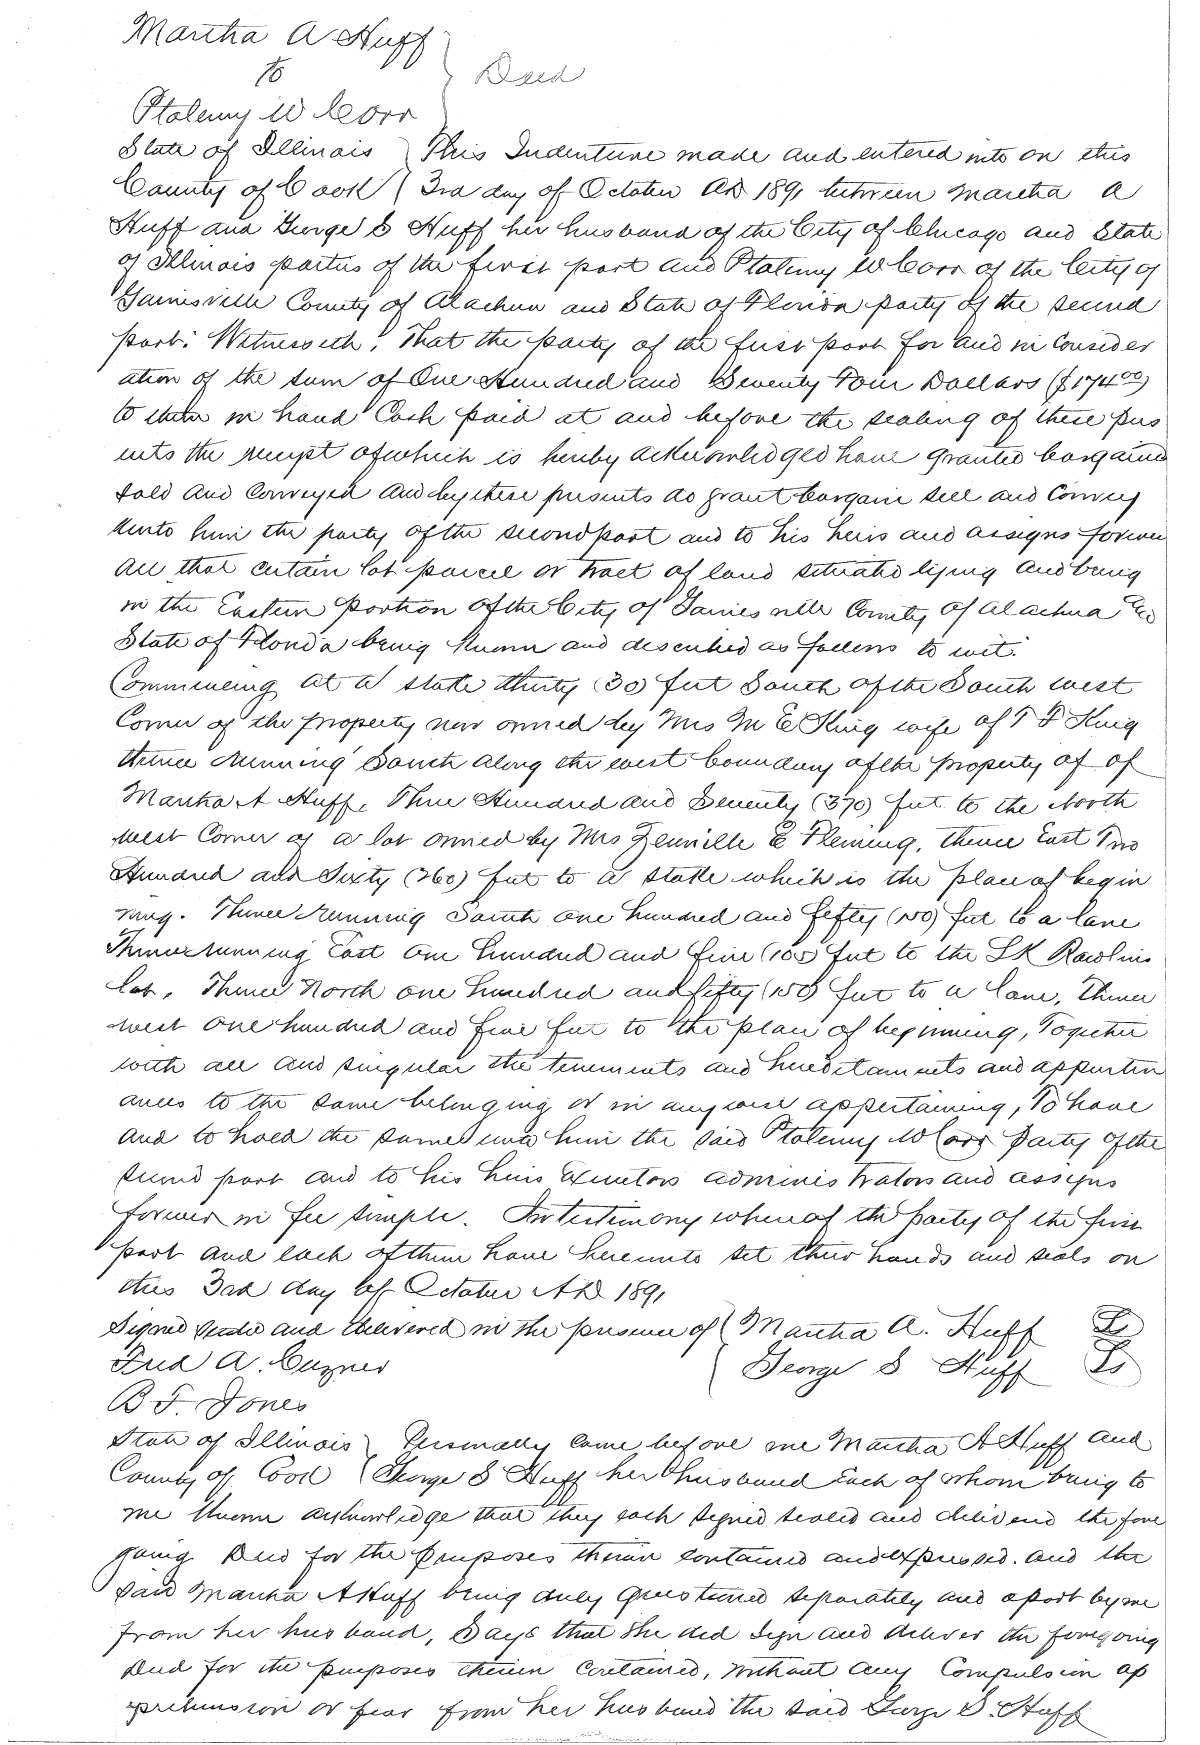 Martha A Huff
to
Deed
Ptolemy W Corr
State of Illinois This Indenture made and entered into on this
County of Cook 3rd day of October AD 1891 between Martha A
Huff and George S Huff her husband of the City of Chicago and State
of Illinois parties of the first part and Ptolemy W Corr of the City of
Gainesville County of Alachua and State of Florida party of the second
part: Witnesseth, That the party of the first part for and in consider
ation of the sum of One Hundred and Seventy Four Dollars ($174.00)
to them in hand Cash paid at and before the sealing of these pres
ents the receipt of which is hereby acknowledged have granted bargained
sold and conveyed and by these presents do grant bargain sell and convey
unto him the party of the second part and to his heirs and assigns forever
All that certain lot parcel or tract of land situated lying and being
in the Eastern portion of the City of Gainesville County of Alachua and
State of Florida being known and described as follows to wit:
Commencing at a stake thirty (30) feet South of the South west
Corner of the property now owned by Mrs M E King wife of T F King
thence running South along the west boundary of the property of of
Martha A Huff, Three Hundred and Seventy (370) feet to the North
west Corner of a lot owned by Mrs E Fleming, thence East Two
Hundred and Sixty (260) feet to a stake which is the place of begin
ning. Thence running South one hundred and fifty (150) feet to a lane
Thence running East one hundred and five (105) feet to the L K Rawlins
lot, Thence North one hundred and fifty (150) feet to a lane, thence
west one hundred and five feet to the place of beginning, Together
with all and singular the tenements and hereditaments and appurten
ances to the same belonging or in anywise appertaining, To have
and to hold the same unto him the said Ptolemy W Corr party of the
second part and to his heirs Executors administrators and assigns
forever in fee simple. In testimony whereof the party of the first
part and each of them have hereunto set their hands and seals on
this 3rd day of October AD 1891
Signed Sealed and delivered in the presence of Martha A. Huff Ls
Fred A. Cuzner George S Huff Ls
B F. Jones
State of Illinois Personally came before me Martha A Huff and
County of Cook George S Huff her husband Each of whom being to
me known acknowledge that they each signed sealed and delivered the fore
going Deed for the purposes therein contained and expressed. and the
said Martha A Huff being duly questioned separately and apart by me
from her husband, Says that She did Sign and deliver the foregoing
Deed for the purposes therein contained, without any Compulsion ap
prehension or fear from her husband the said George S. Huff